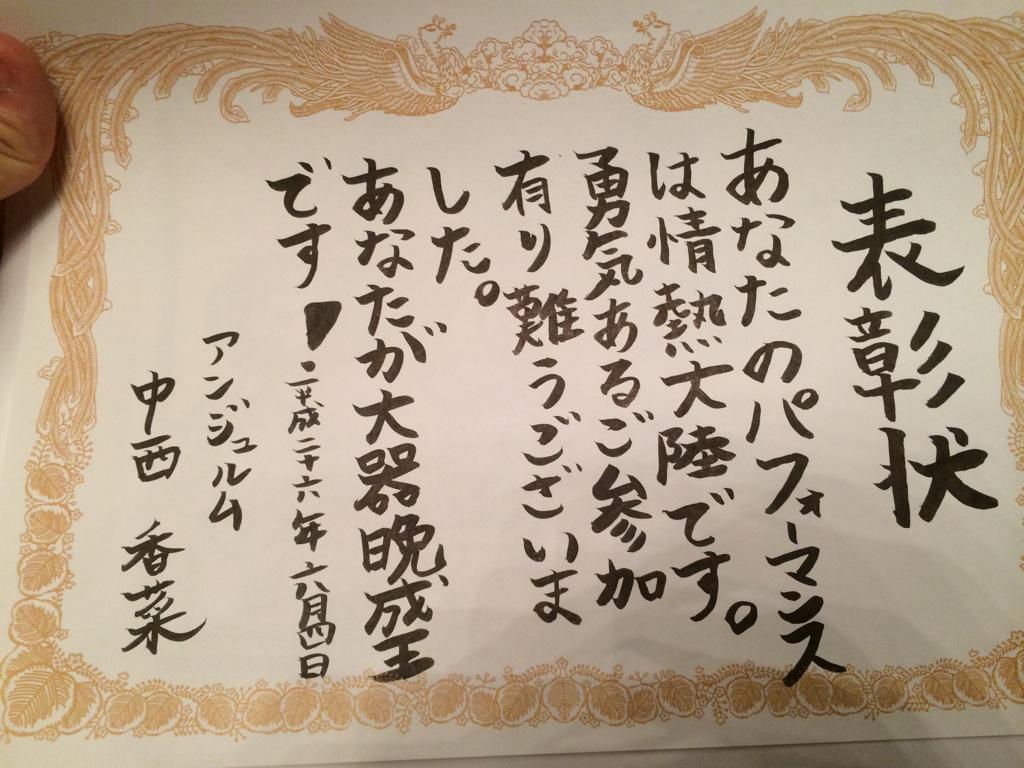 表彰状
あなたのパフォーマンス
は情熱大陸です。
勇気あるご参加
有り難うございま
した。
あなたが大器晩成王
です!
平成二十六年六月四日
アンジュルム
中西 香菜